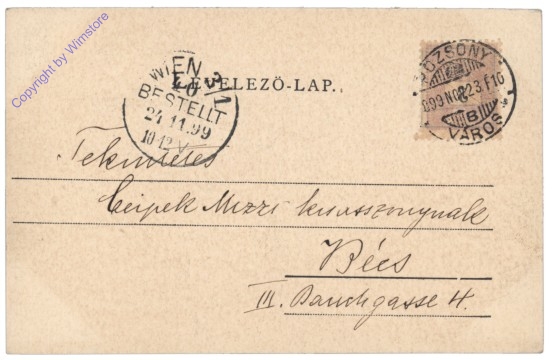 Copyright by Wimstore
LEVELEZŐ-LAP.
WIEN
BESTELLT
24.11.99
POZSONY
VÁROS
Tekintetes
Czipek Mizzi kisasszonynak
Bécs
III. Dauchgasse 4.